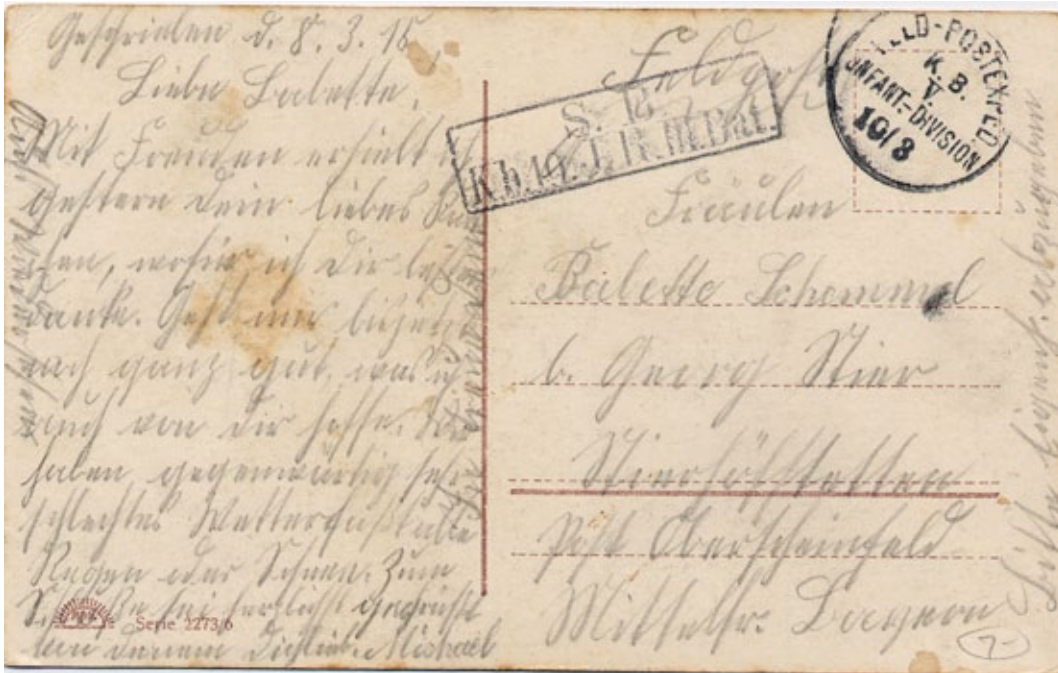 Geschrieben d. 8. 3. 16
Liebe Babette,
Mit Freuden erhielt ich
gestern dein liebes
wofür ich Dir bestens
danke. Geht mir bisher
noch ganz gut, was ich
auch von dir hoffe. Wir
haben gegenwärtig sehr
schlechtes Wetter
Regen oder Schnee. Zum
Schluße sei herzlichst gegrüßt
von deinem Dichlieb. Michael
Feldpost
S. B.
K. b. 10. I. R. III. Bat.
FELD-POSTEXPED
K. B.
V.
INFANT.-DIVISION
10/3
Fräulen
Babette Schemmel
b. Georg Stier
Stierhöfstetten
Post Oberscheinfeld
Mittelfr. Bayern
Serie 2273/6
7-